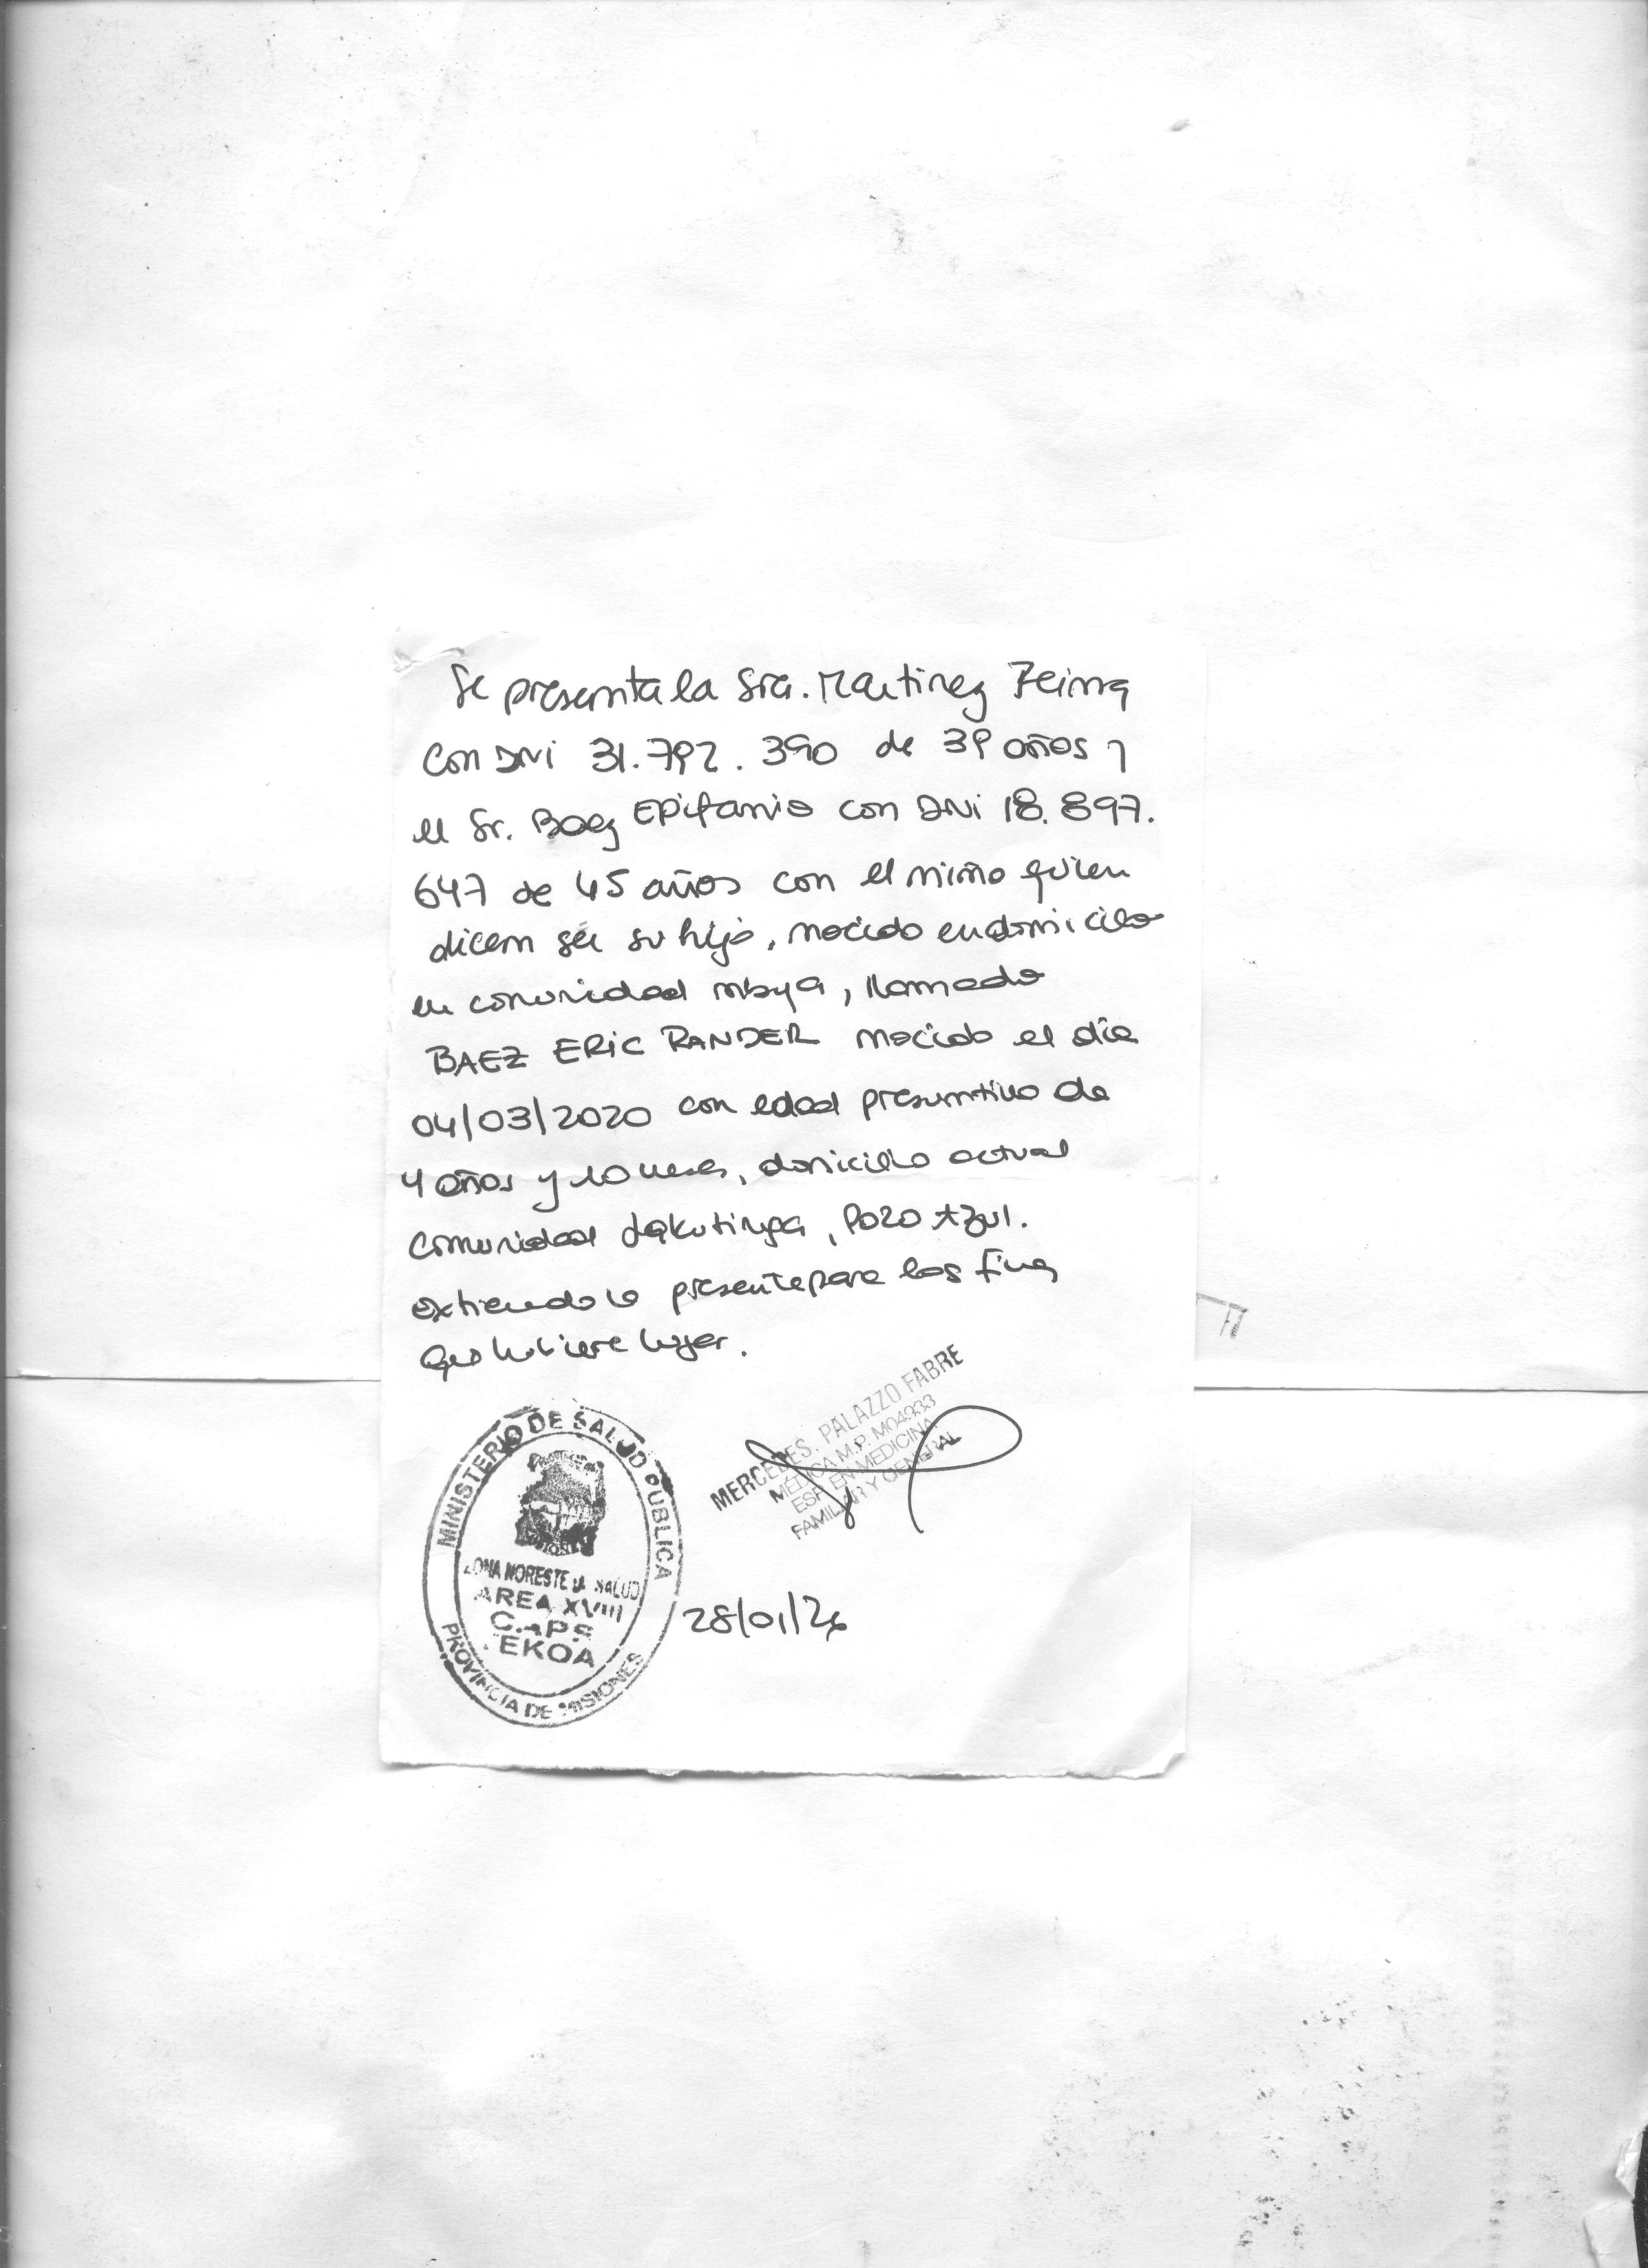 Se presenta la Sra. Martinez Zeima
con DNI 31.792.390 de 39 años y
el Sr. Baez Epifanio con DNI 18.897.
647 de 45 años con el niño quien
dicen ser su hijo, nacido en domicilio
en comunidad mbya, llamado
BAEZ ERIC RANDER nacido el día
04/03/2020 con edad presuntiva de
4 años y 10 meses, domicilio actual
comunidad Jakutinga, Pozo Azul.
extiendo la presente para los fines
que hubiere lugar.
MERCEDES. PALAZZO FABRE
MÉDICA M.P. M04933
ESP. EN MEDICINA
FAMILIAR Y GENERAL
MINISTERIO DE SALUD PUBLICA
ZONA NORESTE DE SALUD
AREA XVIII
C.APS
EKOA
PROVINCIA DE MISIONES
28/01/26